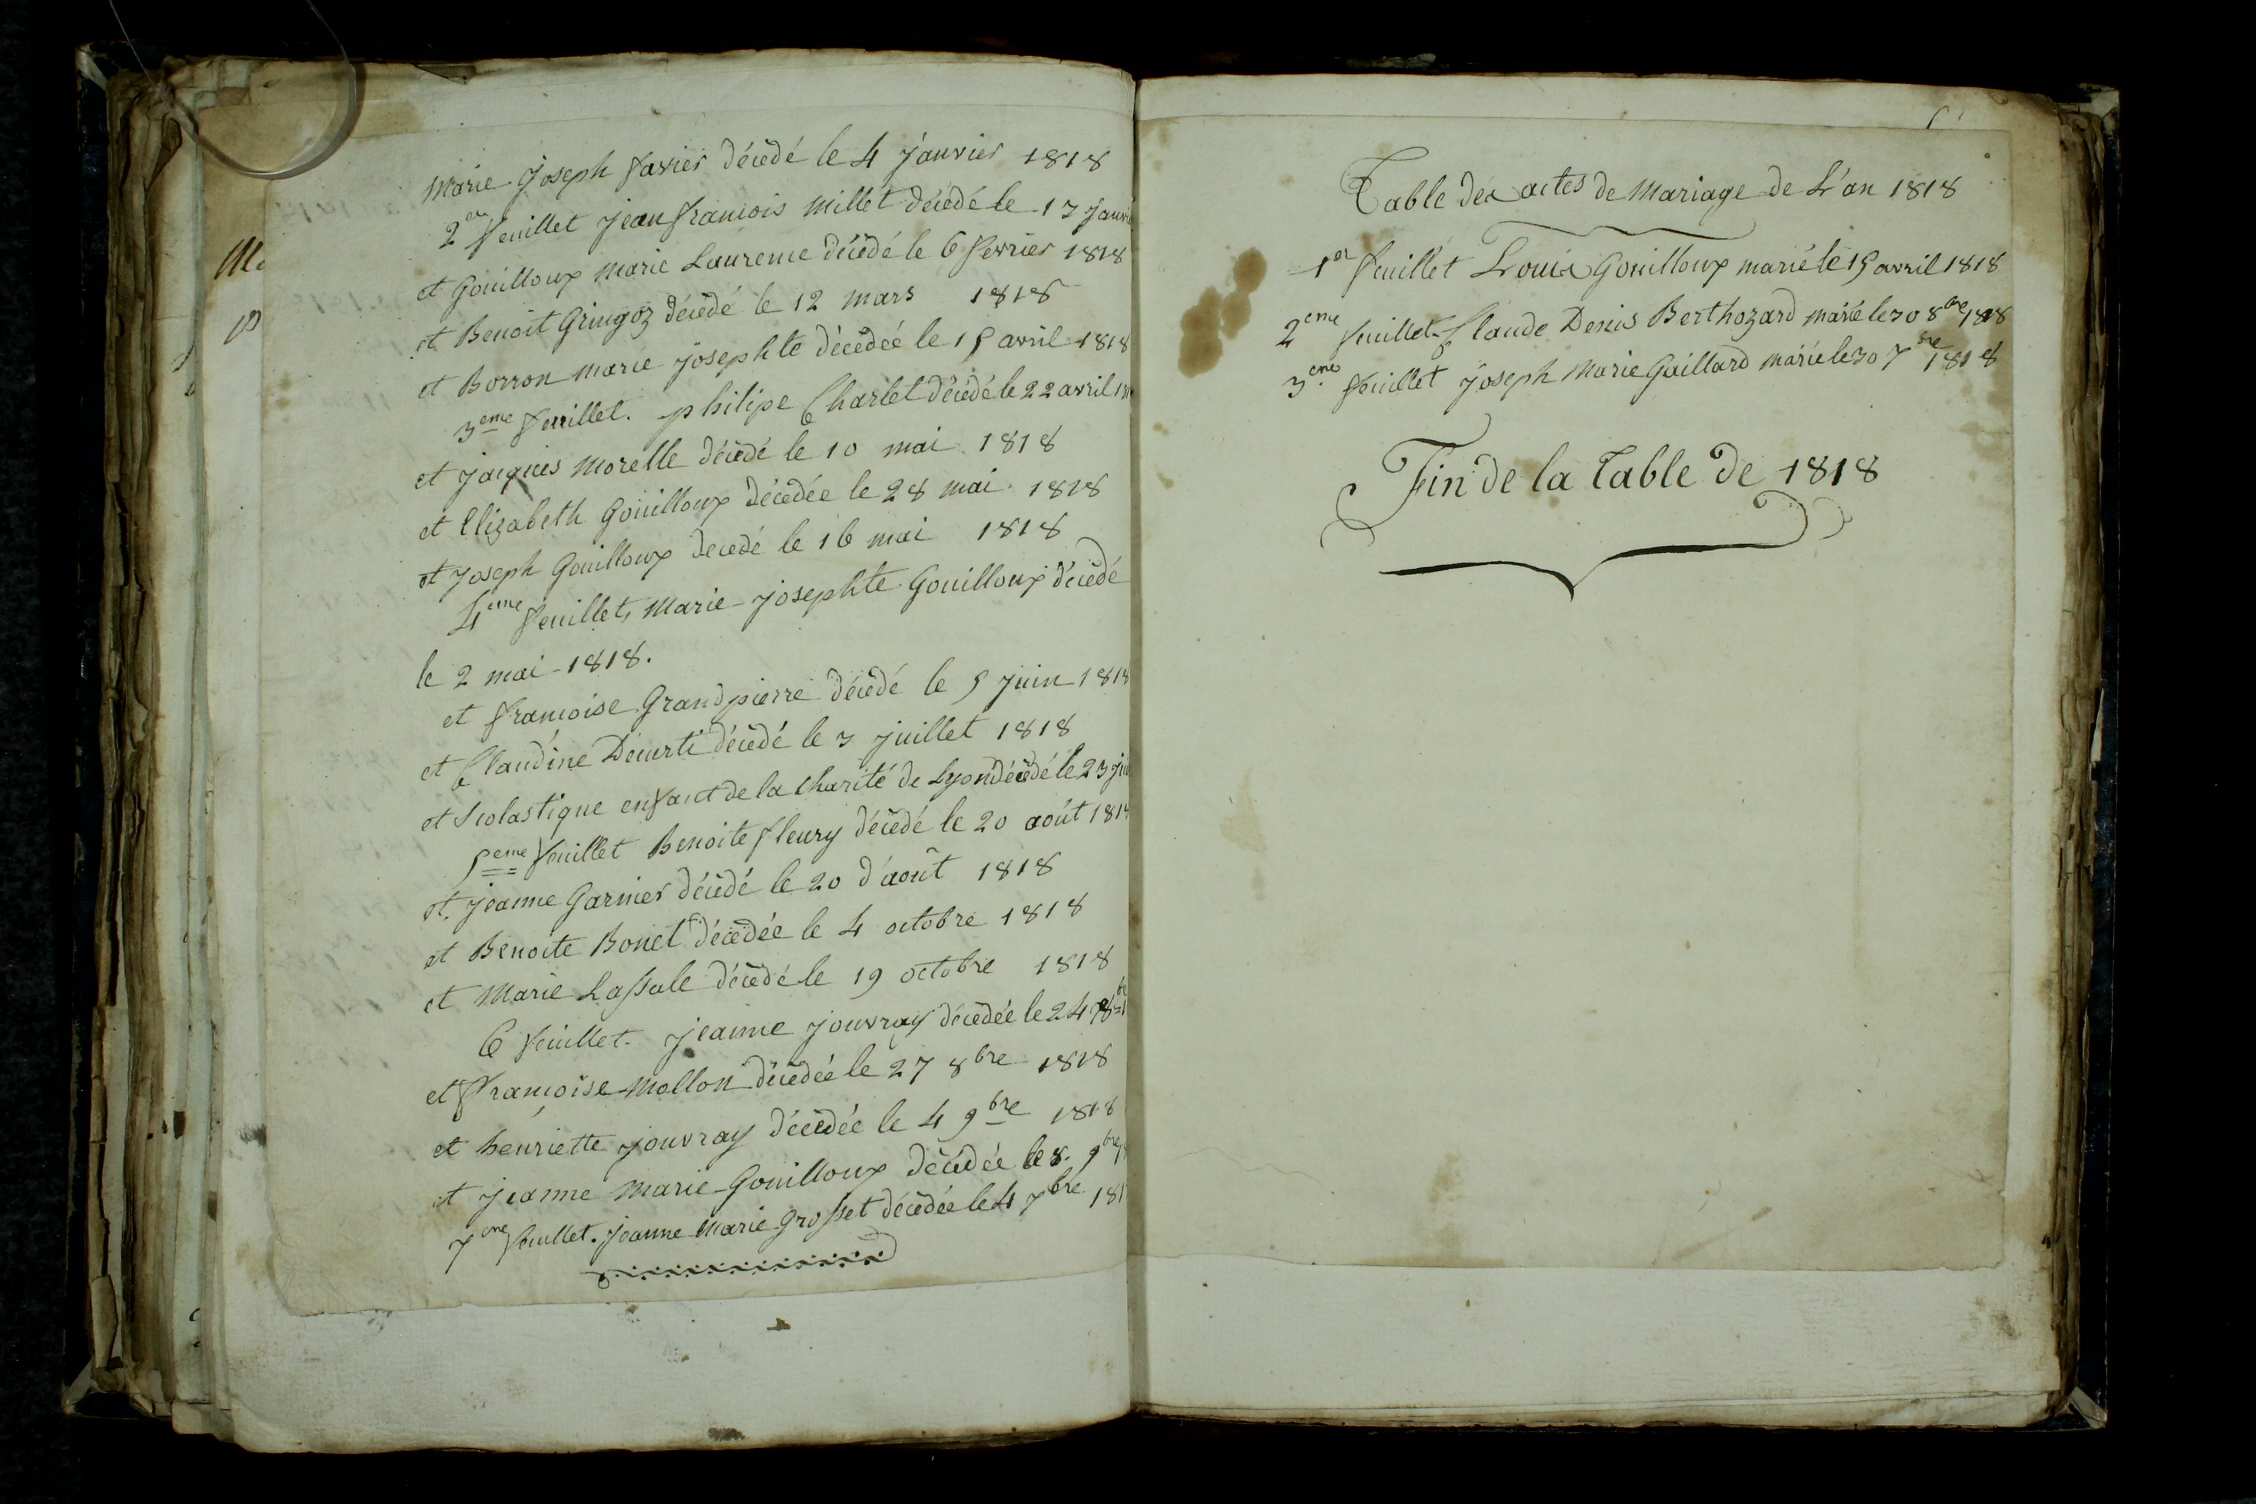 Marie Joseph Favier décedé le 4 janvier 1818
2em feuillet jean francois Millet décédé le 13 Janvi
et Gouilloux Marie Laurence décédé le 6 fevrier 1818
et Benoit Gringoz décédé le 12 mars 1818
et Borron marie josephte décédeé le 15 avril 1818
3eme feuillet. philipe Charlet décédé le 22 avril
et jacques Morelle décédé le 10 mai 1818
et Elizabeth Gouilloux décedée le 28 mai 1818
et joseph Gouilloux decedé le 16 mai 1818
4eme feuillet, Marie-josephte Gouilloux décédé
le 2 mai 1818.
et francoise Grandpierre décédé le 5 juin 1818
et Claudine Décurti décédé le 3 juillet 1818
et Scolastique enfant de la Charité de Lyon décédé le 23
5eme feuillet Benoite fleury décédé le 20 août 181
et jeanne Garnier décédé le 20 d'août 1818
et Benoite Bonet décedée le 4 octobre 1818
et Marie Lassale décédé le 19 octobre 1818
6 feuillet. jeanne jouvray décédée le 24
et francoise Mollon décédée le 27 8bre 1818
et henriette jouvray décédée le 4 9bre 1818
et jeanne Marie Gouilloux décédée le 8. 9bre
7eme feuillet. jeanne Marie Grosset décédée le 4 7bre 181
Table des actes de Mariage de L'an 1818
1er feuillet Louis Gouilloux marié le 15 avril 1818
2eme feuillet Claude Denis Berthozard marié le 30 8bre 1818
3eme feuillet joseph Marie Gaillard marié le 30 7bre 1818
Fin de la Table de 1818